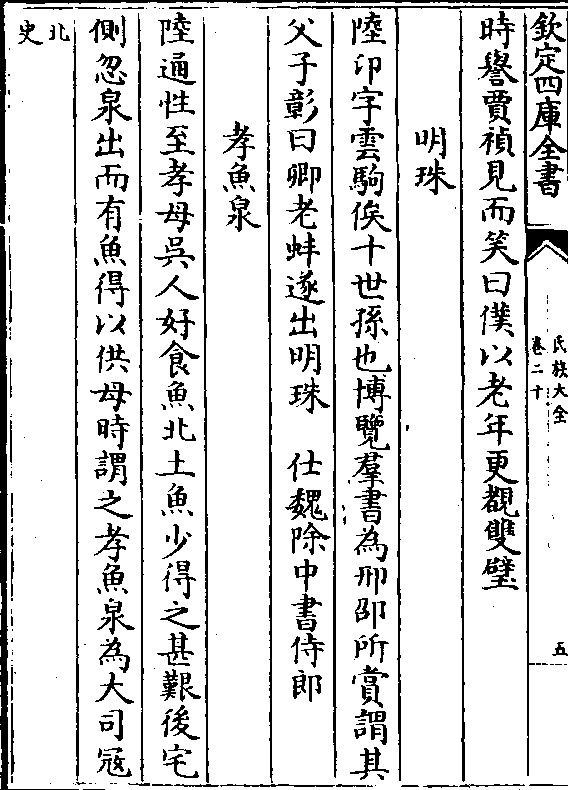 欽定四庫全書
氏族大全
卷二十
五
時譽賈禎見而笑曰僕以老年更覩雙璧
明珠
陸卬字雲駒俟十世孫也博覽羣書為邢邵所賞謂其
父子彰曰卿老蚌遂出明珠　仕魏除中書侍郎
孝魚泉
陸通性至孝母吳人好食魚北土魚少得之甚艱後宅
側忽泉出而有魚得以供母時謂之孝魚泉為大司冦
北
史